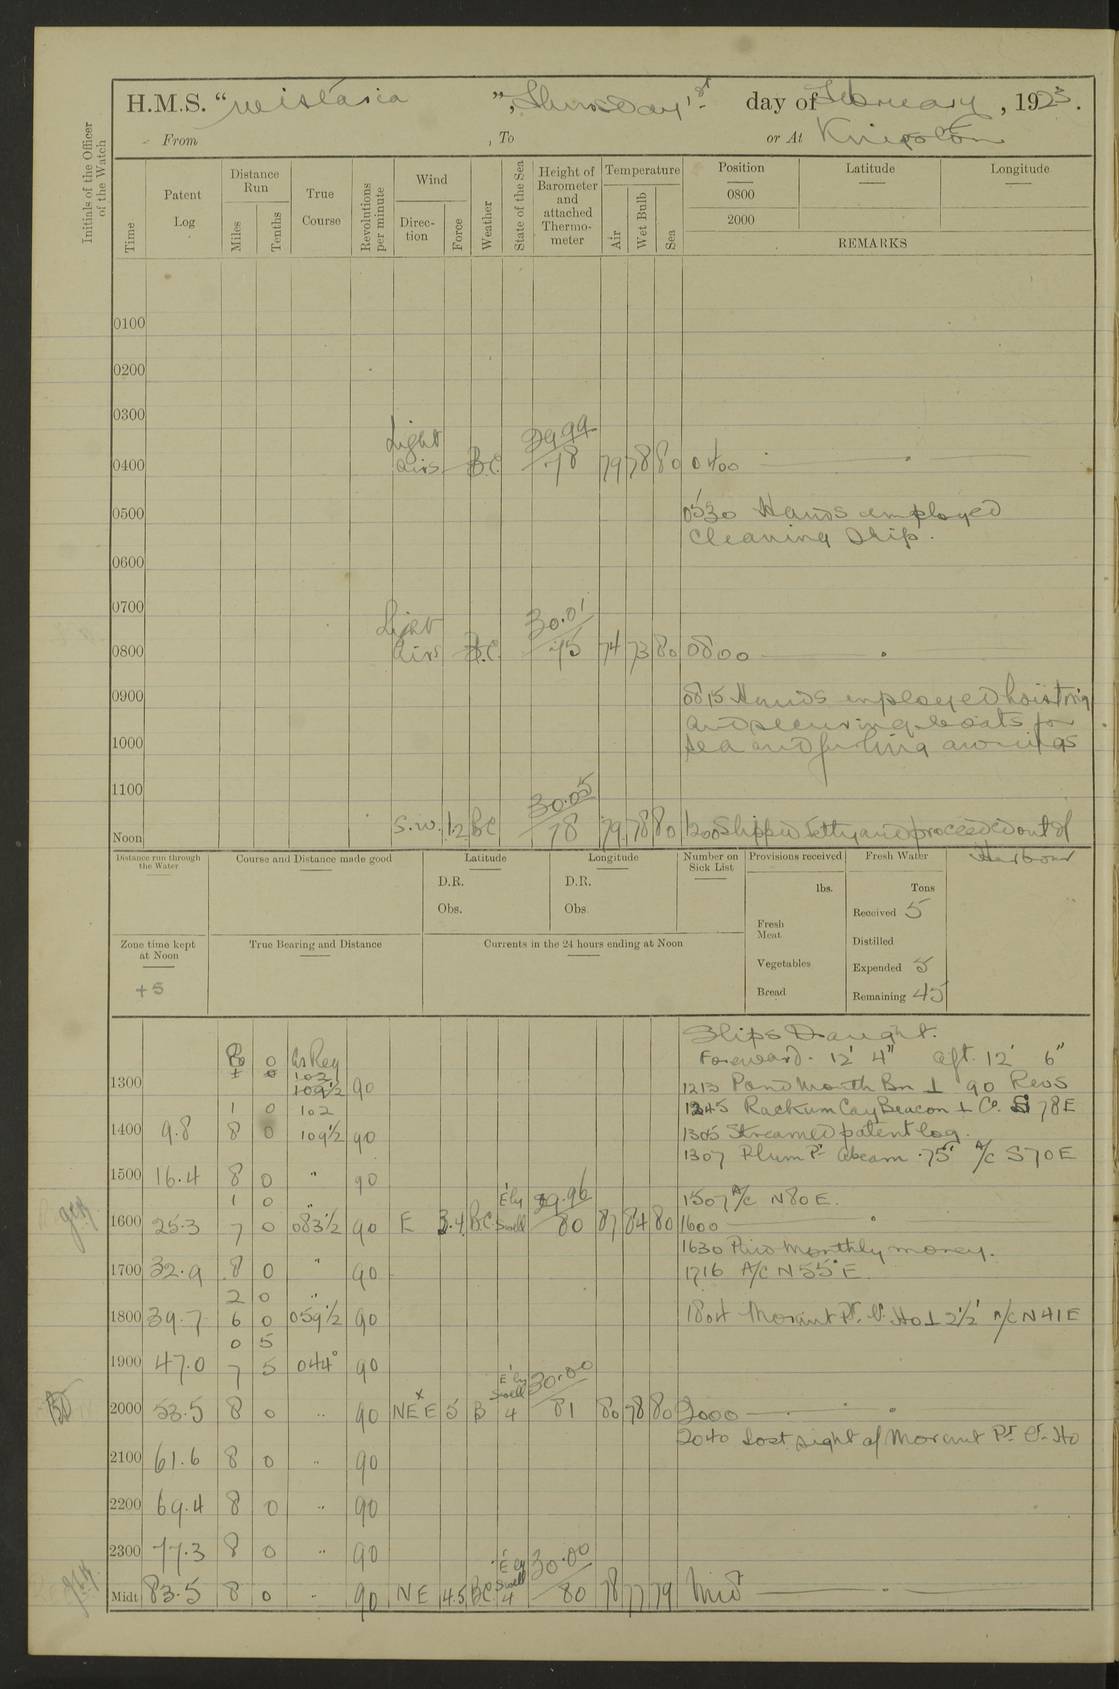 H.M.S. "Wistaria", Thursday 1st day of February, 1923.
From , To or At Kingston
Initials of the Officer of the Watch
Time
Patent Log
Distance Run
Miles
Tenths
True Course
Revolutions per minute
Wind
Direction
Force
Weather
State of the Sea
Height of Barometer and attached Thermometer
Temperature
Air
Wet Bulb
Sea
Position
Latitude
Longitude
0800
2000
REMARKS
0100
0200
0300
0400 Light airs B.C. 29.99 78 79 78 80 0400
0500 0530 Hands employed
cleaning ship.
0600
0700
0800 Light airs B.C. 30.01 75 74 73 80 0800
0900 0815 Hands employed hoisting
and securing boats for
1000 sea and furling awnings
1100
Noon S.W. 1.2 BC 30.05 78 79 78 80 1200 Slipped Jetty and proceeded out of
Harbour
Distance run through the Water
Course and Distance made good
Latitude
D.R.
Obs.
Longitude
D.R.
Obs
Number on Sick List
Provisions received
lbs.
Fresh Meat
Vegetables
Bread
Fresh Water
Tons
Received 5
Distilled
Expended 5
Remaining 45
Zone time kept at Noon
+5
True Bearing and Distance
Currents in the 24 hours ending at Noon
Ships Draught.
Foreward. 12' 4" aft. 12' 6"
0 As Req
102
1300 109½ 90 1213 Pond Month Bn ⊥ 90 Revs
1 0 102 1245 Rackum Cay Beacon ⊥ Co. S 78E
1400 9.8 8 0 109½ 90 1305 Streamed patent log.
1307 Plum Pt abeam .75' A/C S70E
1500 16.4 8 0 " 90
1 0 " E'ly Swell 29.96 1507 A/C N80E.
1600 25.3 7 0 083½ 90 E 3.4 B.C. 80 87 84 80 1600
1630 Paid Monthly money.
1700 32.9 8 0 " 90 1716 A/C N55°E.
2 0 "
1800 39.7 6 0 059½ 90 1804 Morant Pt. Lt. Ho ⊥ 2½' A/C N41E
0 5
1900 47.0 7 5 044° 90
2000 53.5 8 0 " 90 NE x E 5 B E'ly Swell 4 30.00 81 80 78 80 2000
2040 Lost sight of Morant Pt Lt. Ho
2100 61.6 8 0 " 90
2200 69.4 8 0 " 90
2300 77.3 8 0 " 90
Midt 83.5 8 0 " 90 NE 4.5 B.C. E'ly Swell 4 30.00 80 78 77 79 Midt